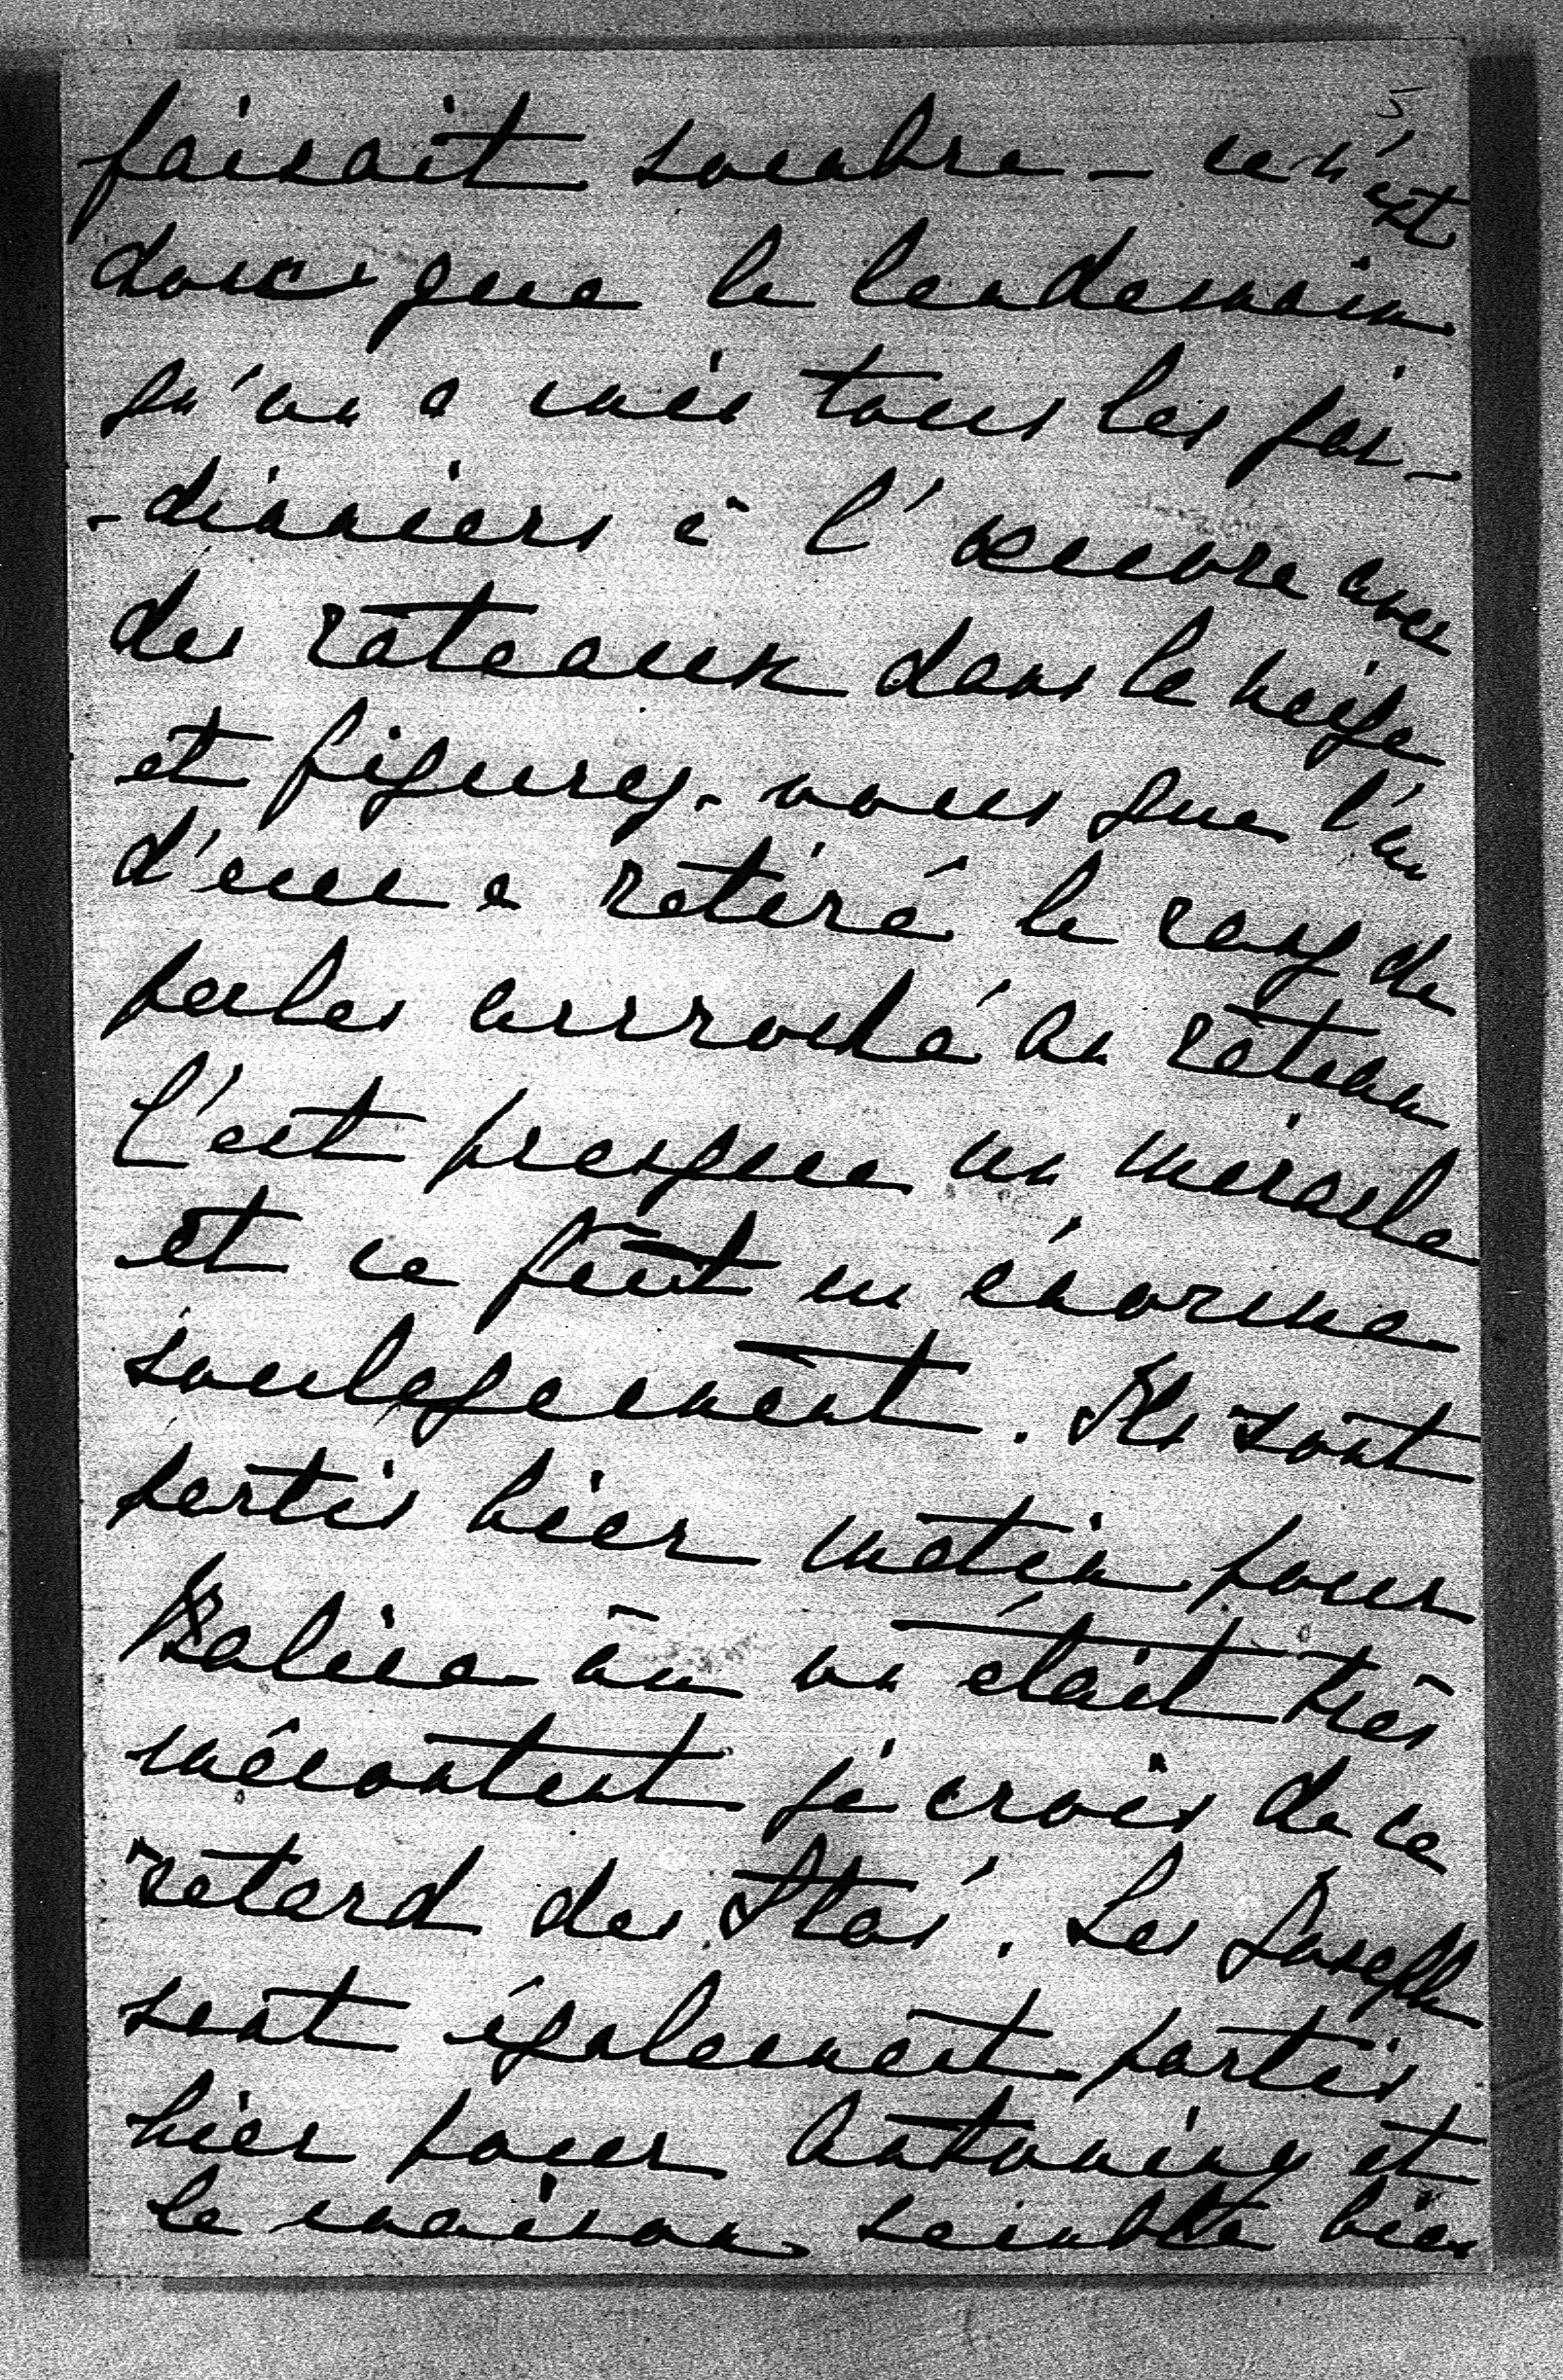 5
faisait sombre – ce n'est
donc que le lendemain
qu'on a mis tous les jar-
-diniers à l'oeuvre avec
des râteaux dans la neige
et figurez-vous que l'un
d'eux a retiré le rang de
perles accroché au râteau
C'est presque un miracle
et ce fut un énorme
soulagement. Ils sont
partis hier matin pour
où on était très
mécontent je crois de ce
retard des Staś. Les Joseph
sont également partis
hier pour Antoniny et
la maison semble bien